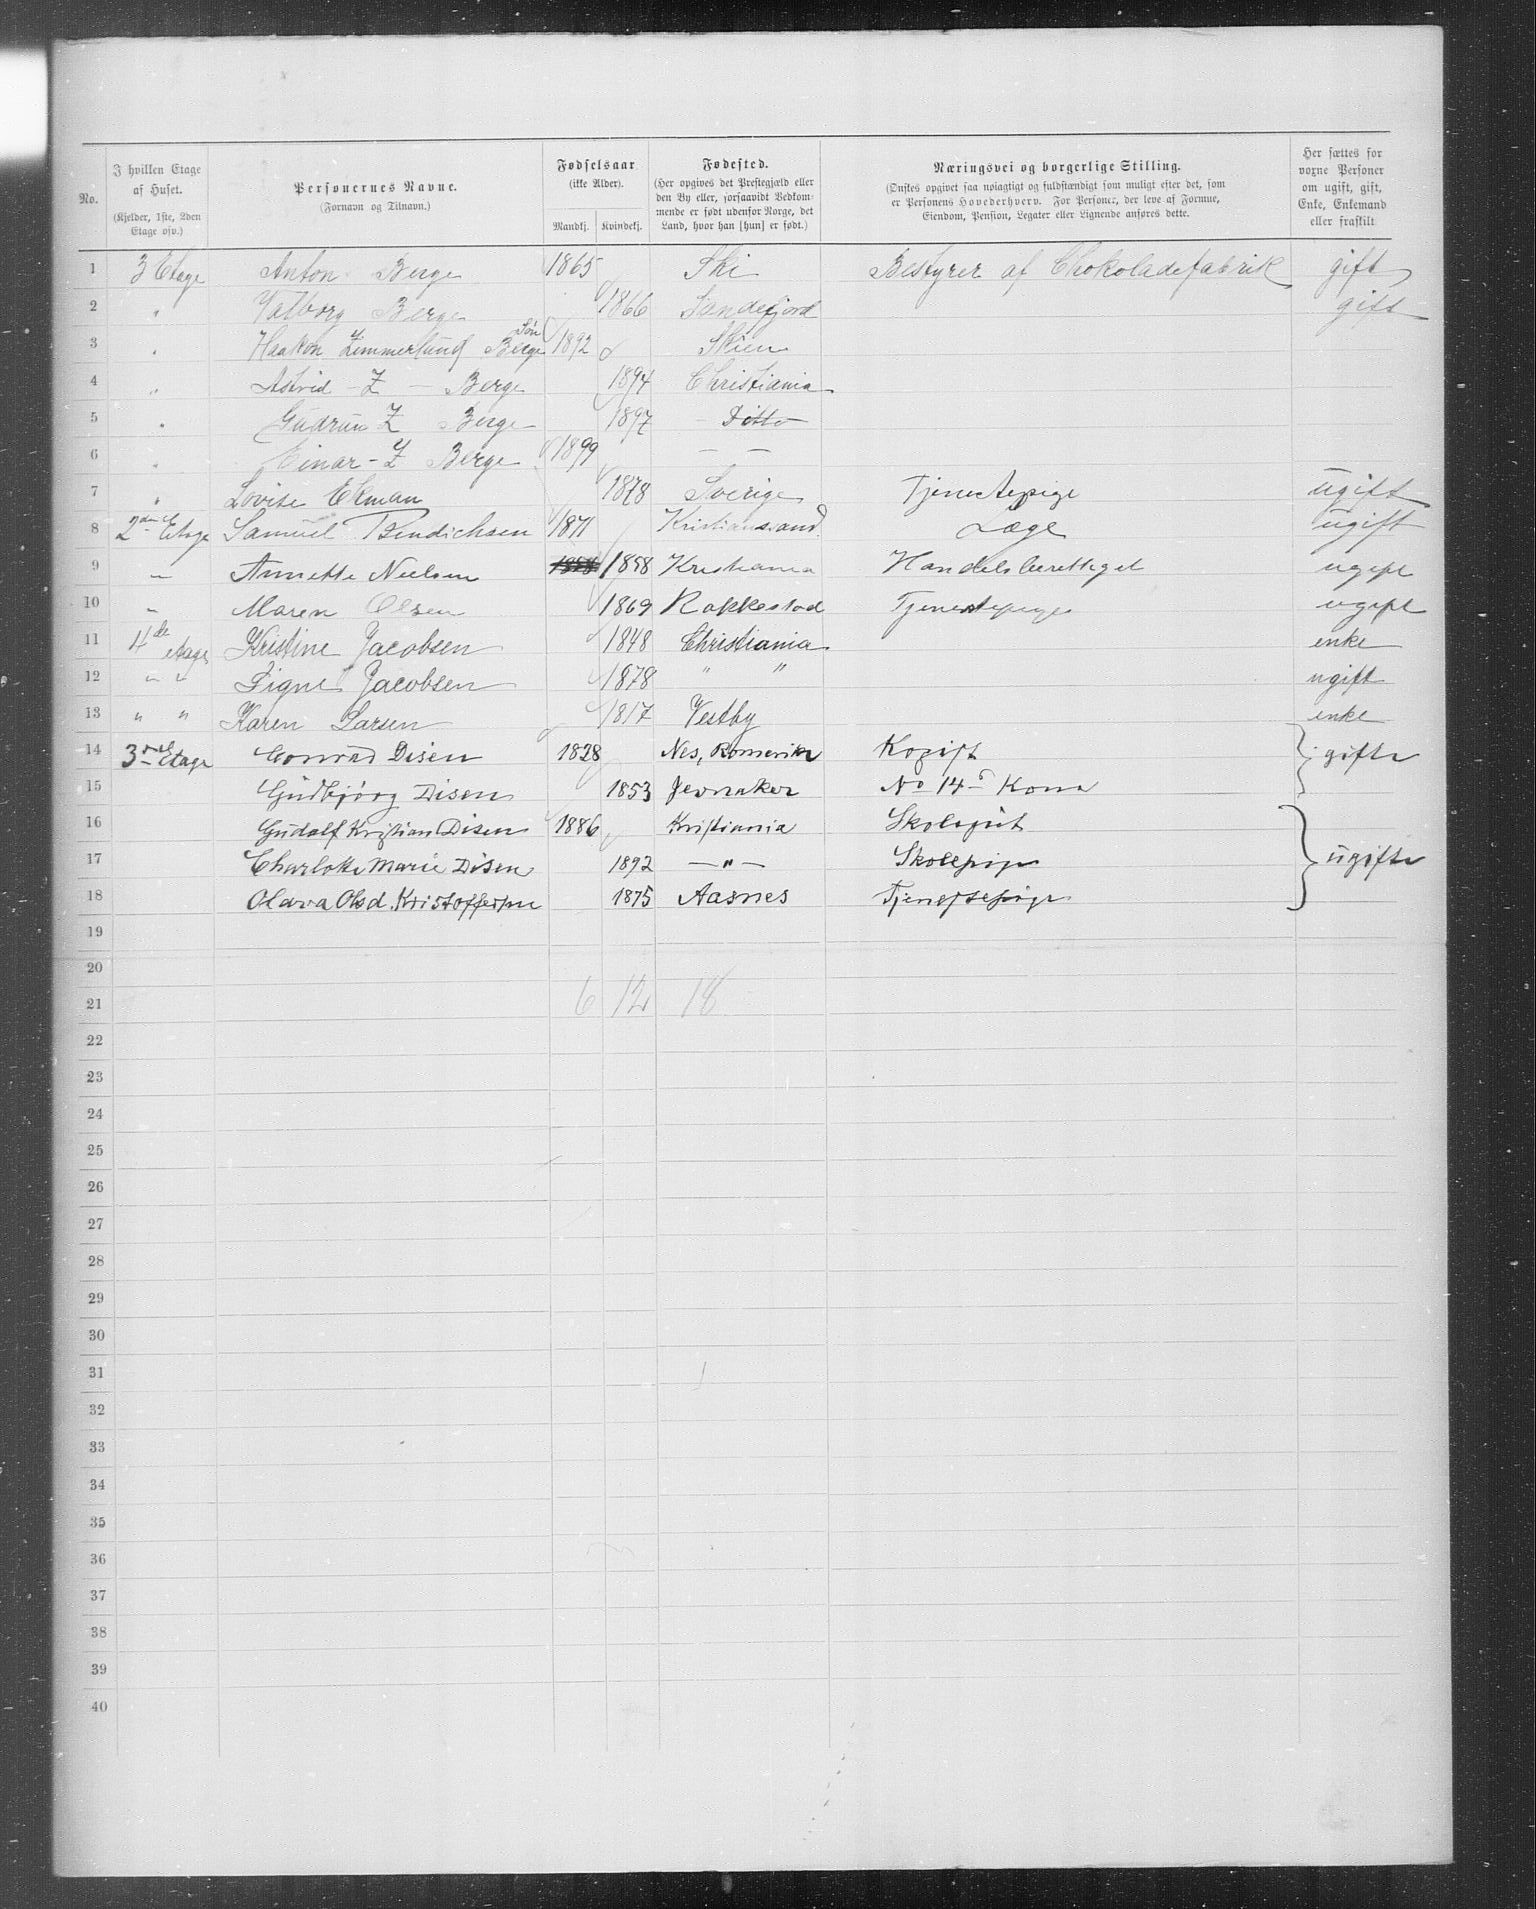 No.
I hvilken Etage af Huset. (Kjelder, 1ste, 2den Etage osv.)
Personernes Navne. (Fornavn og Tilnavn.)
Fødselsaar (ikke Alder). Mandkj. Kvindekj.
Fødested. (Her opgives det Prestegjæld eller den By eller, forsaavidt Vedkommende er født udenfor Norge, det Land, hvor han [hun] er født.)
Næringsvei og borgerlige Stilling. (Ønskes opgivet saa nøiagtigt og fuldstændigt som muligt efter det, som er Personens Hovederhverv. For Personer, der leve af Formue, Eiendom, Pension, Legater eller Lignende anføres dette.
Her sættes for voxne Personer om ugift, gift, Enke, Enkemand eller fraskilt
1 3 Etage Anton Berge 1865 Ski Bestyrer af Chokoladefabrik gift
2 " Valborg Berge 1866 Sandefjord gift
3 " Haakon Zimmerlund Berge Søn 1892 Skien
4 " Astrid - Z - Berge 1894 Christiania
5 " Gudrun Z Berge 1897 - Ditto
6 " Einar - Z Berge 1899 — —
7 " Lovise Ekman 1878 Sverige Tjenestepige ugift
8 2den Etage Samuel Bendichsen 1871 Kristianssand Læge ugift
9 — Annette Nielsen 1858 1858 Kristiania Handelsberettiget ugift
10 — Maren Olsen 1869 Rakkestad Tjenestepige ugift
11 4de etage Kristine Jacobsen 1848 Christiania enke
12 " " Signe Jacobsen 1878 " " ugift
13 " " Karen Larsen 1817 Vestby enke
14 3die Etage Conrad Disen 1828 Nes, Romerike Kopist gifte
15 Gudbjørg Disen 1853 Jevnaker No 14s Kona
16 Gudolf Kristian Disen 1886 Kristiania Skolegut
17 Charlotte Marie Disen 1892 —"— Skolepige ugifte
18 Olava Olsd. Kristoffersen 1875 Aasnes Tjenestepige
19
20
21 6 12 18
22
23
24
25
26
27
28
29
30
31
32
33
34
35
36
37
38
39
40